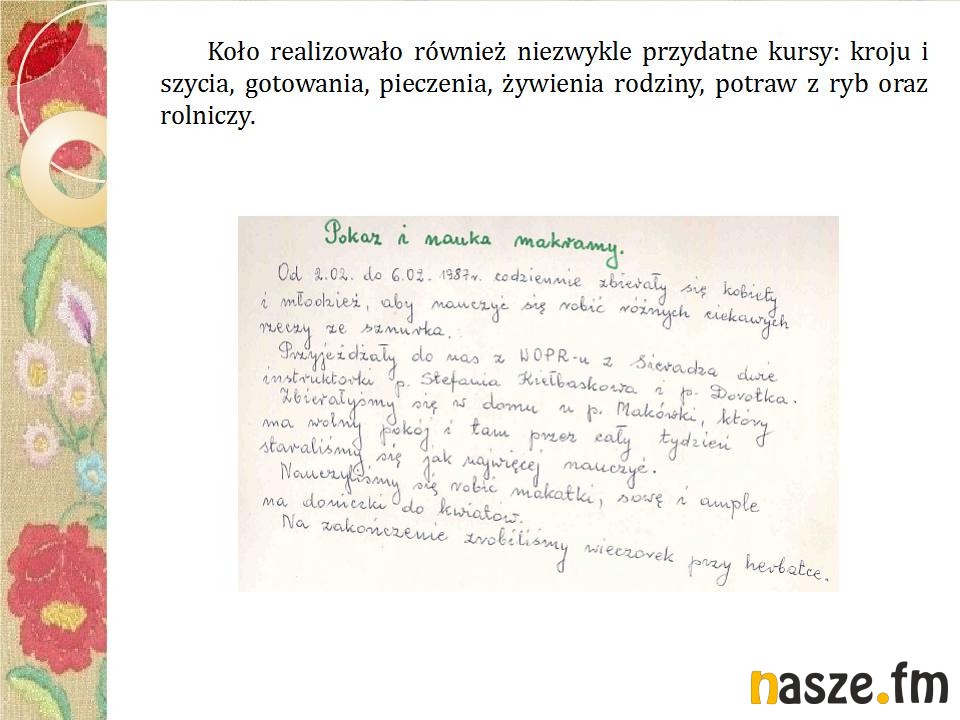 Koło realizowało również niezwykle przydatne kursy: kroju i
szycia, gotowania, pieczenia, żywienia rodziny, potraw z ryb oraz
rolniczy.
Pokaz i nauka makramy.
Od 2.02. do 6.02. 1987r. codziennie zbierały się kobiety
i młodzież, aby nauczyć się robić różnych ciekawych
rzeczy ze sznurka.
Przyjeżdżały do nas z WOPR-u z Sieradza dwie
instruktorki p. Stefania Kiełbaskowa i p. Dorotka.
Zbierałyśmy się w domu u p. Makówski, który
ma wolny pokój i tam przez cały tydzień
staraliśmy się jak najwięcej nauczyć.
Nauczyliśmy się robić makatki, sowę i ample
na doniczki do kwiatów.
Na zakończenie zrobiliśmy wieczorek przy herbatce.
nasze.fm